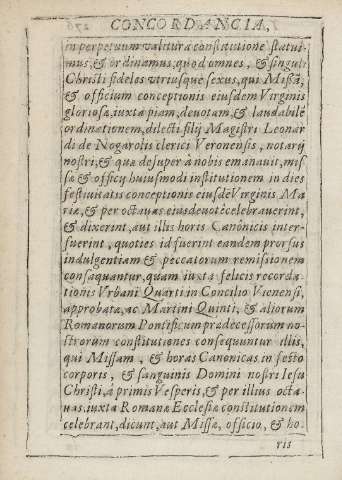 CONCORDANCIA,
in perpetuum valitura constitutione statui-
mus, & ordinamus, quod omnes, & singuli
Christi fideles vtriusque sexus, qui Missā,
& officium conceptionis eiusdem Virginis
gloriosæ, iuxta piam, deuotam, & laudabilē
ordinationem, dilecti filij Magistri Leonar
di de Nogarolis clerici Veronensis, notarij
nostri, & quæ desuper à nobis emanauit, mis
sæ & officij huiusmodi institutionem in dies
festiuitatis conceptionis eiusdē Virginis Ma
riæ, & per octauas eias deuotè celebrauerint,
& dixerint, aut illis horis Canōnicis inter-
fuerint, quoties id fuerint eandem prorsus
indulgentiam & peccatorum remissionem
consaquantur, quam iuxta felicis recorda-
tionis Vrbani Quarti in Concilio Vienensi,
approbata, ac Martini Quinti, & aliorum
Romanorum Pontificum prædecessorum no-
strorum constitutiones consequuntur illis,
qui Missam, & horas Canonicas in festo
corporis, & sanguinis Domini nostri Iesu
Christi, á primis Vesperis, & per illius octa-
uas, iuxta Romanæ Ecclesiæ constitutionem
celebrant, dicunt, aut Missæ, officio, & ho-
ris